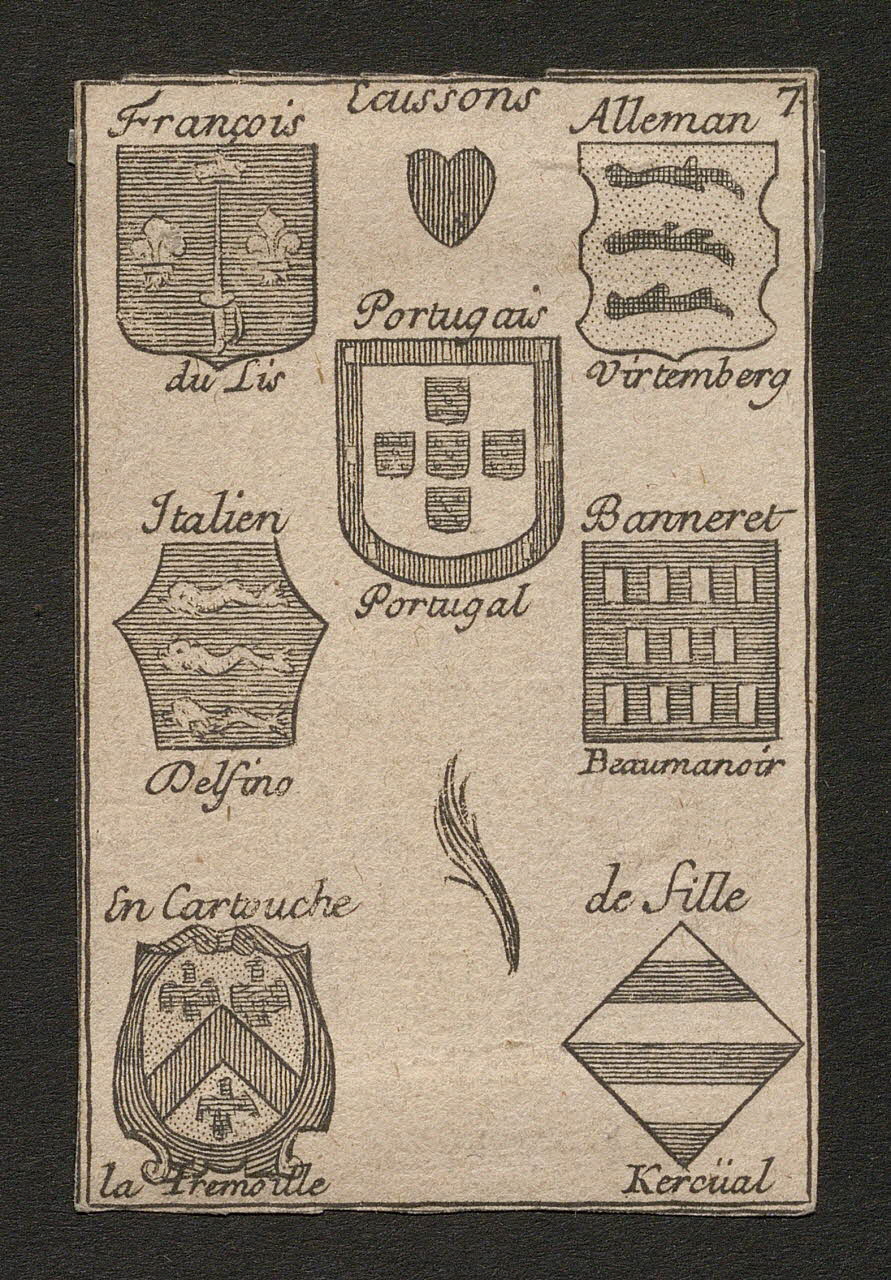 Ecussons
7
François
Alleman
du Lis
Portugais
Virtemberg
Italien
Banneret
Portugal
Delfino
Beaumanoir
En Cartouche
de fille
la Tremoille
Kercüal